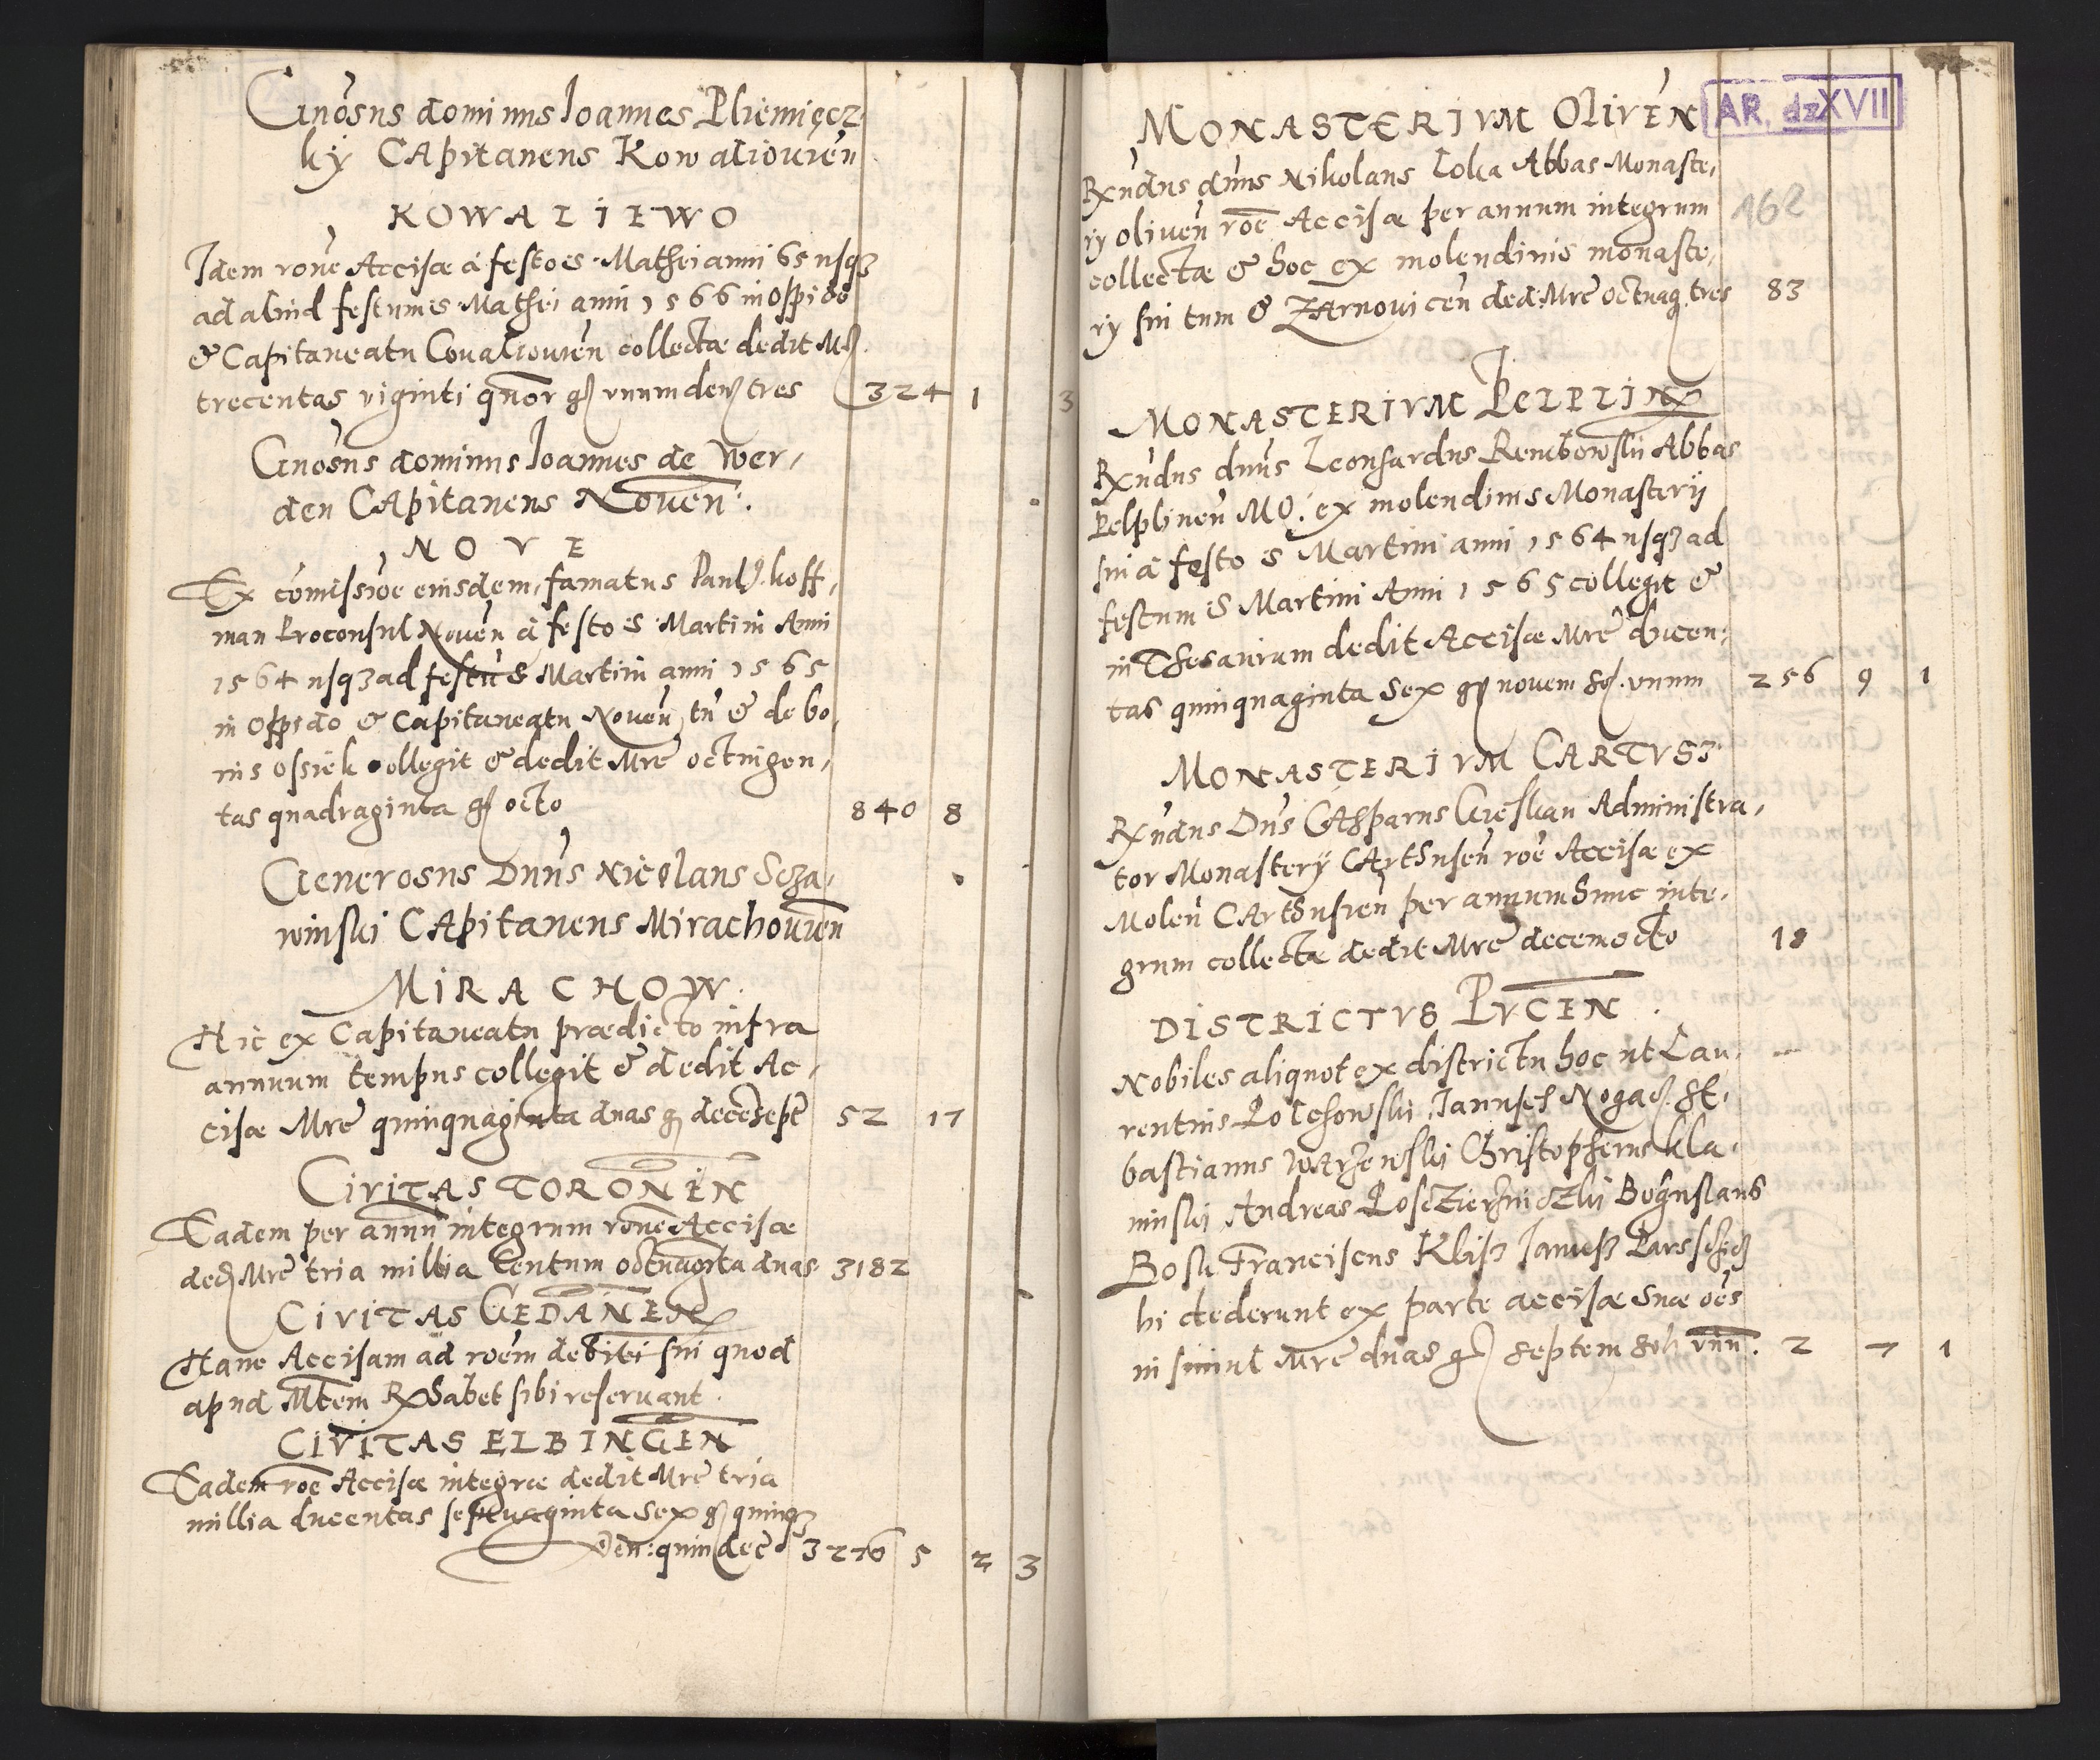 Gnosus dominus Ioannes Pliemięcz
ky CApitaneus Kowaliovien
KOWALIEWO
Idem rone Accisæ a festo S. Mathei anni 65 usqz
ad aliud festum S Mathei anni 1566 in Oppido
& Capitaneatu Covaliovien collectæ dedit
trecentas viginti quor gr unum den tres 324 1 3
Gnosus dominus Ioannes de Wer,
den CApitaneus Noven:
NOVE
Ex comissioe eiusdem, famatus Paul9 hoff,
man Proconsul Noven a festo S Martini Anni
1564 usqz ad festu S Martini anni 1565
in Oppido & Capitaneatu Noven, tu & de bo,
nis Ossiek collegit & dedit Mre octingen,
tas quadraginta gr octo 840 8
Generosus Dnus Nicolaus Scza,
winski CApitaneus Mirachovien
MIRACHOW.
Hic ex Capitaneatu prædicto infra
annuum tempus collegit & dedit Ac,
cisæ Mre quinquaginta duas g decesept 52 17
CIVITAS TORONEN
Eadem per annu integrum rone Accisæ
ded Mre tria millia Centum octuagita duas 3182
CIVITAS GEDANEN
Hanc Accisam ad roem debiti sui quod
apud Mtem R habet sibi reservant.
CIVITAS ELBINGEN
Eadem roe Accisæ integræ dedit Mre tria
millia ducentas septuaginta sex g quinqz
Den: quindece 3276 5 2 3
MONASTERIVM OLIVEN AR. dz XVII
Rndus dnus Nikolaus Loka Abbas Monaste,
ry oliven roe Accisæ per annum integrum 162
collectæ & hoc ex molendinis monaste,
ry sui tum & ZArnovicen ded Mre octuag. tres 83
MONASTERIVM PELPLIN
Rndus dnus Leonhardus Rembowski Abbas
Pelplinen ex molendinis Monasterij
sui a festo S Martini anni 1564 usqz ad
festum S Martini Anni 1565 collegit &
in Thesaurum dedit Accisæ Mre ducen,
tas quinquaginta Sex gr novem sol. unum 256 9 1
MONASTERIVM CARTVSZ
Rndus Dnus CAsparus Gieskau Administra,
tor Monasterÿ CArthusen roe Accisæ ex
Molen CArthusien per annum hunc inte,
grum collectæ dedit Mre decemocto 18
DISTRICTVS PVCEN.
Nobiles aliquot ex districtu hoc ut Lau,
rentius Polchowski, Janusch St,
bastianus Warzewski Christopherus Kla,
ninski Andreas Bogusłaus
Bosk Franciscus Janusz
hi dederunt ex parte accisæ suæ oes
in simul Mre duas g septem sol unu. 2 7 1